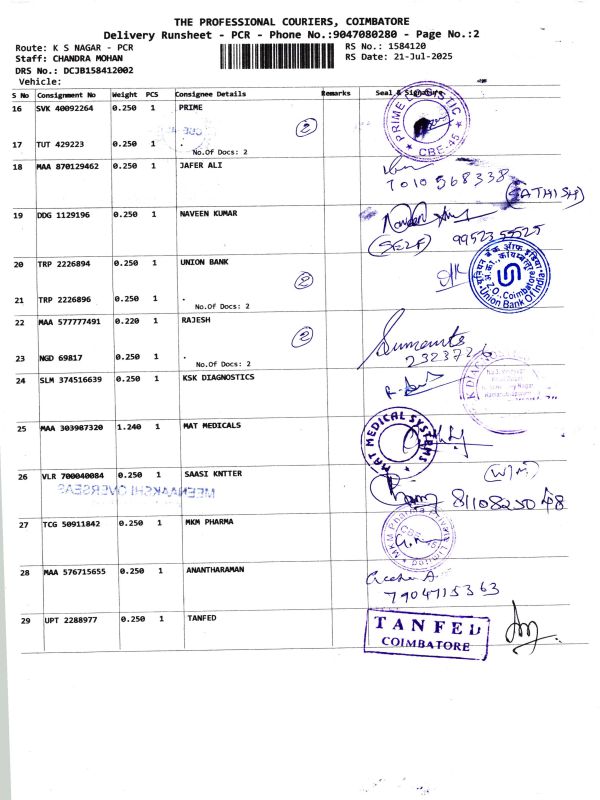 THE PROFESSIONAL COURIERS, COIMBATORE
Delivery Runsheet - PCR - Phone No.:9047080280 - Page No.:2
Route: K S NAGAR - PCR
RS No.: 1584120
Staff: CHANDRA MOHAN
RS Date: 21-Jul-2025
DRS No.: DCJB158412002
Vehicle:
S No Consignment No Weight PCS Consignee Details Remarks Seal & Signature
16 SVK 40092264 0.250 1 PRIME
2
PRIME LOGISTIC
★ CBE-45 ★
17 TUT 429223 0.250 1 .
No.Of Docs: 2
18 MAA 870129462 0.250 1 JAFER ALI
7010568338
(SATHISH)
19 DDG 1129196 0.250 1 NAVEEN KUMAR
(SELF) 9952355525
20 TRP 2226894 0.250 1 UNION BANK
2
Z.O., Coimbatore
Union Bank Of India
21 TRP 2226896 0.250 1 .
No.Of Docs: 2
22 MAA 577777491 0.220 1 RAJESH
2
23 NGD 69817 0.250 1 .
No.Of Docs: 2
24 SLM 374516639 0.250 1 KSK DIAGNOSTICS
25 MAA 303987320 1.240 1 MAT MEDICALS
MAT MEDICAL SYSTEMS
26 VLR 700040084 0.250 1 SAASI KNTTER
MEENAAKSHI OVERSEAS
27 TCG 50911842 0.250 1 MKM PHARMA
MKM Pharma Private Limited
CBE-45
28 MAA 576715655 0.250 1 ANANTHARAMAN
7904715363
29 UPT 2288977 0.250 1 TANFED
TANFED
COIMBATORE